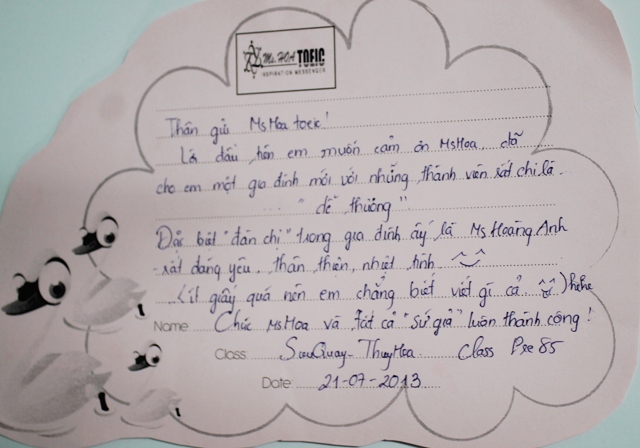 Ms. HOA TOEIC
INSPIRATION MESSENGER
Thân gửi MsHoa toeic!
Lá đầu tiên em muốn cảm ơn MsHoa đã
cho em một gia đình mới với những thành viên rất chi là
" dễ thương "
Đặc biệt "đàn chị" trong gia đình ấy là Ms Hoàng Anh
rất đáng yêu, thân thiện, nhiệt tình
(ít giấy quá nên em chẳng biết viết gì cả ) hehe
Name Chúc MsHoa và tất cả "sứ giả" luôn thành công!
Class SuuQuay- ThuyHoa Class Pre 85
Date 21-07-2013